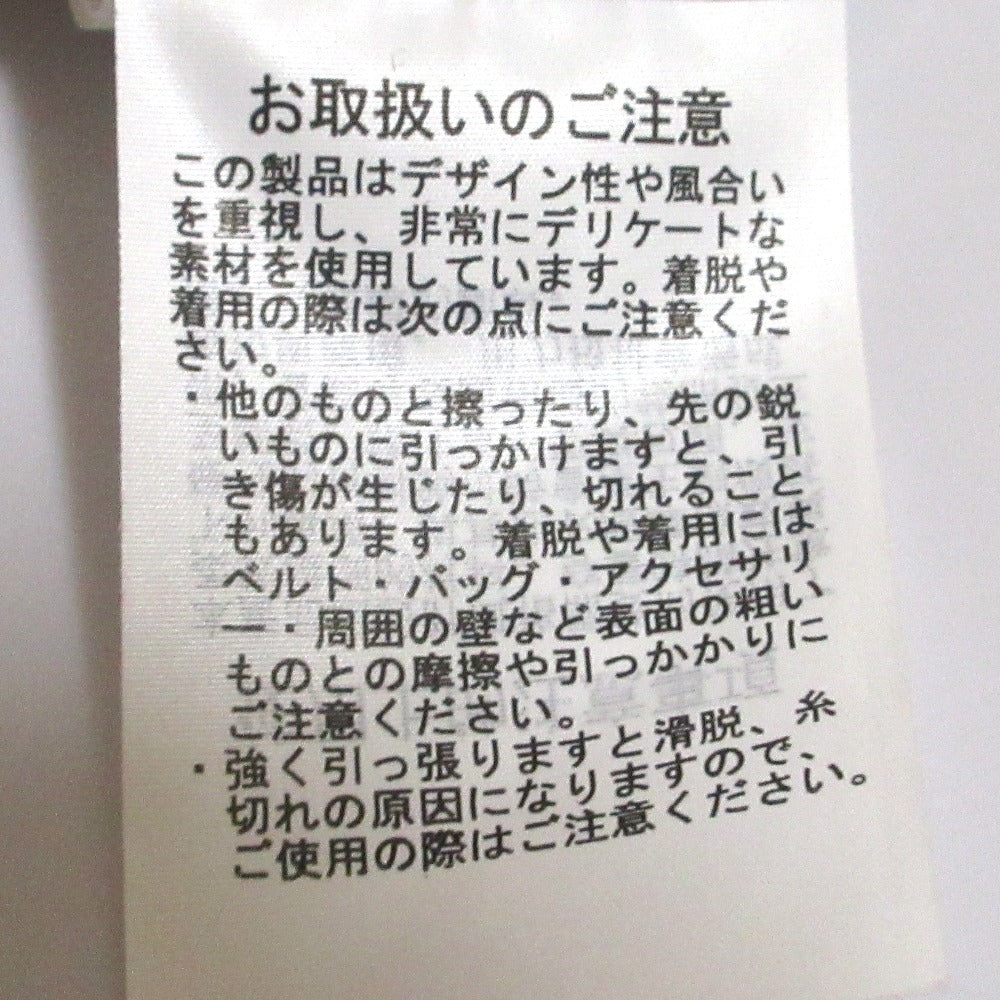 お取扱いのご注意
この製品はデザイン性や風合い
を重視し、非常にデリケートな
素材を使用しています。着脱や
着用の際は次の点にご注意くだ
さい。
・他のものと擦ったり、先の鋭
いものに引っかけますと、引
き傷が生じたり、切れること
もあります。着脱や着用には
ベルト・バッグ・アクセサリ
ー・周囲の壁など表面の粗い
ものとの摩擦や引っかかりに
ご注意ください。
・強く引っ張りますと滑脱、糸
切れの原因になりますので、
ご使用の際はご注意ください。